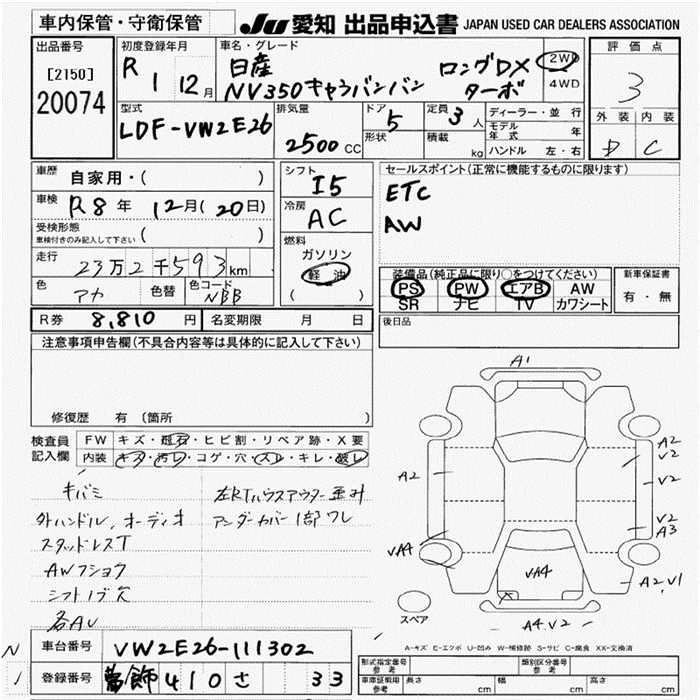 車内保管・守衛保管
JU 愛知 出品申込書 JAPAN USED CAR DEALERS ASSOCIATION
出品番号
[2150]
20074
初度登録年月
R 1 12月
車名・グレード
日産 ロングDX
NV350キャラバンバン ターボ
2WD
4WD
評価点
3
外装 内装
D C
型式
LDF-VW2E26
排気量
2500 CC
ドア 5
形状
定員 3 人
積載 kg
ディーラー・並行
モデル年式 年
ハンドル 左・右
車歴 自家用・( )
車検 R8年 12月(20日)
受検形態
車検付きのみ記入して下さい ( )
走行 23万2千593km
色 アカ 色替 色コード NBB
シフト I5
冷房 AC
燃料
ガソリン
軽油
( )
セールスポイント(正常に機能するものに限ります)
ETC
AW
装備品(純正品に限り〇をつけてください)
PS PW エアB AW
SR ナビ TV カワシート
新車保証書
有・無
R券 8,810円 名変期限 月 日
後日品
注意事項申告欄(不具合内容等は具体的に記入して下さい)
修復歴 有 (箇所 )
検査員記入欄
FW キズ・飛石・ヒビ割・リペア跡・X要
内装 キズ・汚レ・コゲ・穴・スレ・キレ・破レ
キバミ
外ハンドル、オーディオ
スタッドレスT
AWフショウ
シフトノブ欠
各AU
左RTハウスアウター
アンダーカバー1部ワレ
A1
A2
V2
A2
V2
V2
A3
VA4
VA4
X
A2.V1
A4.V2
スペア
A-キズ E-エクボ U-凹み W-補修跡 S-サビ C-腐食 XX-交換済
車台番号 VW2E26-111302
登録番号 葛飾 410 さ 33
形式指定番号 参考
類別区分番号 参考
車庫証明用 参考 長さ cm 幅 cm 高さ cm